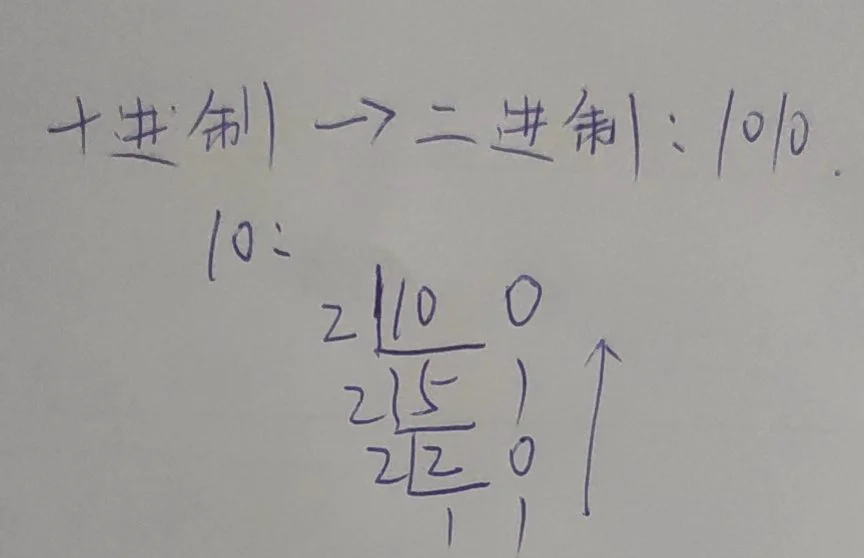 十进制→二进制:1010.
10:
2 10 0
2 5 1
2 2 0
1 1